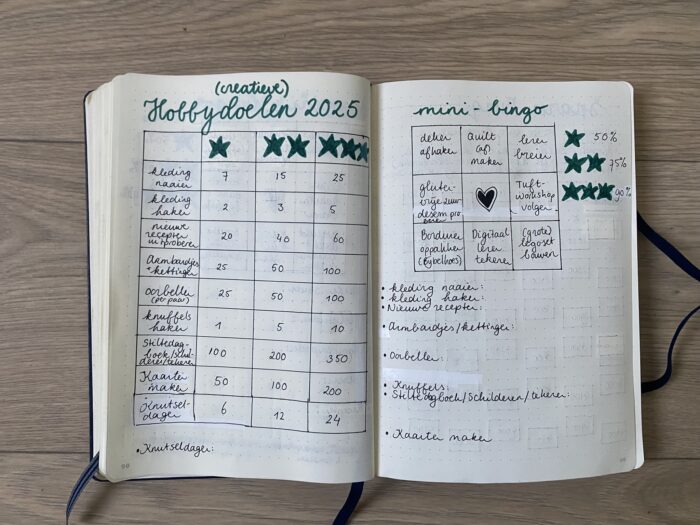 (creatieve)
Hobbydoelen 2025
kleding naaien 7 15 25
kleding haken 2 3 5
nieuwe recepten uitproberen 20 40 60
Armbandjes + kettingen 25 50 100
oorbellen (per paar) 25 50 100
knuffels haken 1 5 10
Stiltedagboek/schilderen/tekenen 100 200 350
Kaarten maken 50 100 200
Knutseldagen 6 12 24
• Knutseldagen:
mini-bingo
deken afhaken
Quilt (af) maken
leren breien
glutenvrije zuurdesem proberen
Tuftworkshop volgen
Borduren oppakken (Bijbelhoes)
Digitaal leren tekenen
(grote) legoset bouwen
50%
75%
90%
• kleding naaien:
• kleding haken:
• Nieuwe recepten:
• Armbandjes/kettingen:
• Oorbellen:
• Knuffels:
• Stiltedagboek/Schilderen/tekenen:
• Kaarten maken